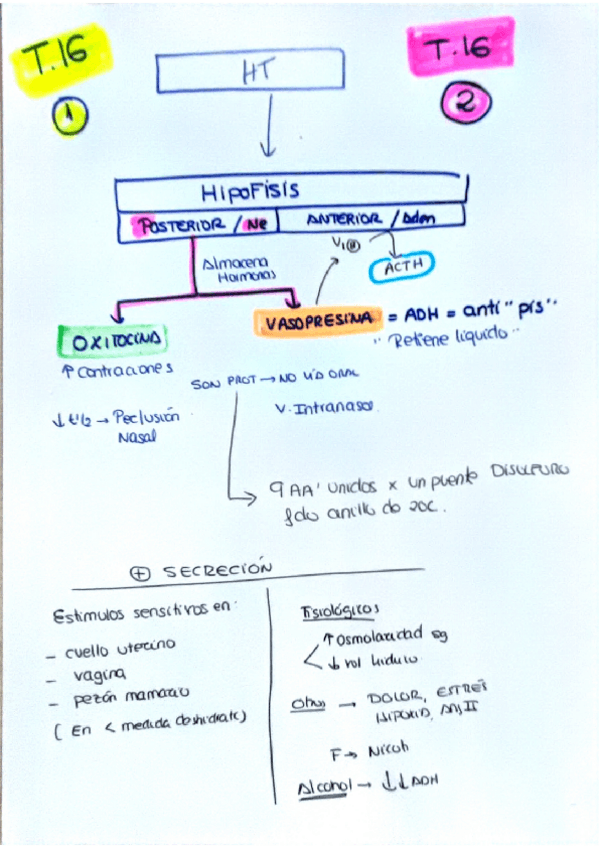 T.16
1
T.16
2
HT
HIPOFISIS
POSTERIOR / Ne
ANTERIOR / Aden
Almacena
Hormonas
V1
ACTH
OXITOCINA
VASOPRESINA = ADH = anti "pis"
"Retiene liquido"
↑ Contracciones
SON PROT → NO VÍA ORAL
V. Intranasal
↓ t1/2 → Peclusión
Nasal
9 AA' Unidos x un puente DISULFURO
fdo anillo de 20C.
⊕ SECRECIÓN
Estimulos sensitivos en:
- cuello uterino
- vagina
- pezón mamario
(En < medida deshidratc)
Fisiológicos
↑ Osmolaridad sg
↓ vol
Otros → DOLOR, ESTRÉS
HIPOXIA, ANG II
F → Nicot
Alcohol → ↓↓ ADH